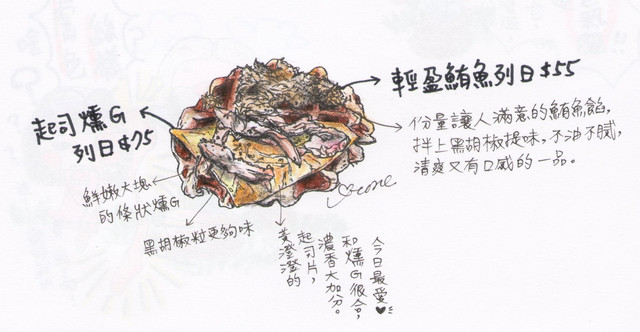 輕盈鮪魚列日$55
份量讓人滿意的鮪魚餡,
拌上黑胡椒提味,不油不膩,
清爽又有口感的一品。
起司燻G
列日$75
鮮嫩大塊
的條狀燻G
黑胡椒粒更夠味
黃澄澄的
起司片,
濃香大加分。
和燻G很合,
今日最愛♥